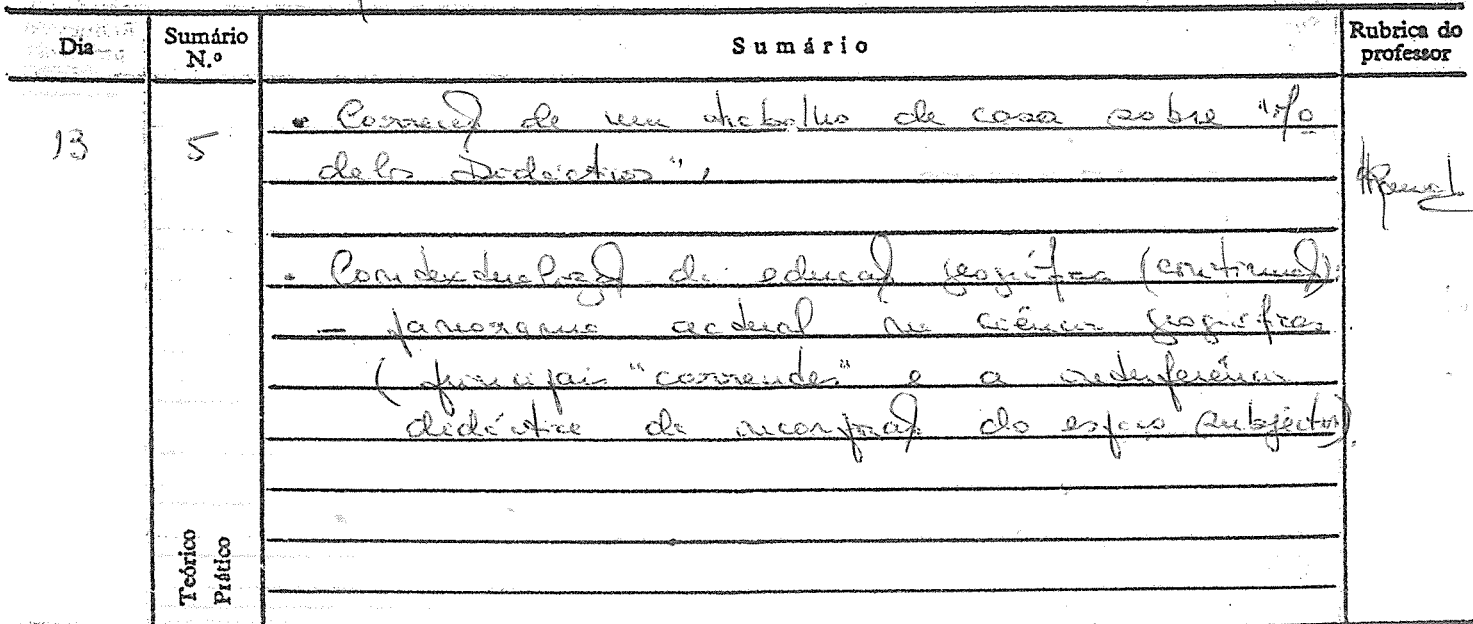 Dia
Sumário N.º
Sumário
Rubrica do professor
13
5
• Correcção de um trabalho de casa sobre "Mo
delos Didácticos",
• Contextualização da educação geográfica (continuação):
– panorama actual na ciência geográfica
(principais "correntes" e a interferência
didáctica da incorporação do espaço subjectivo).
Teórico
Prático